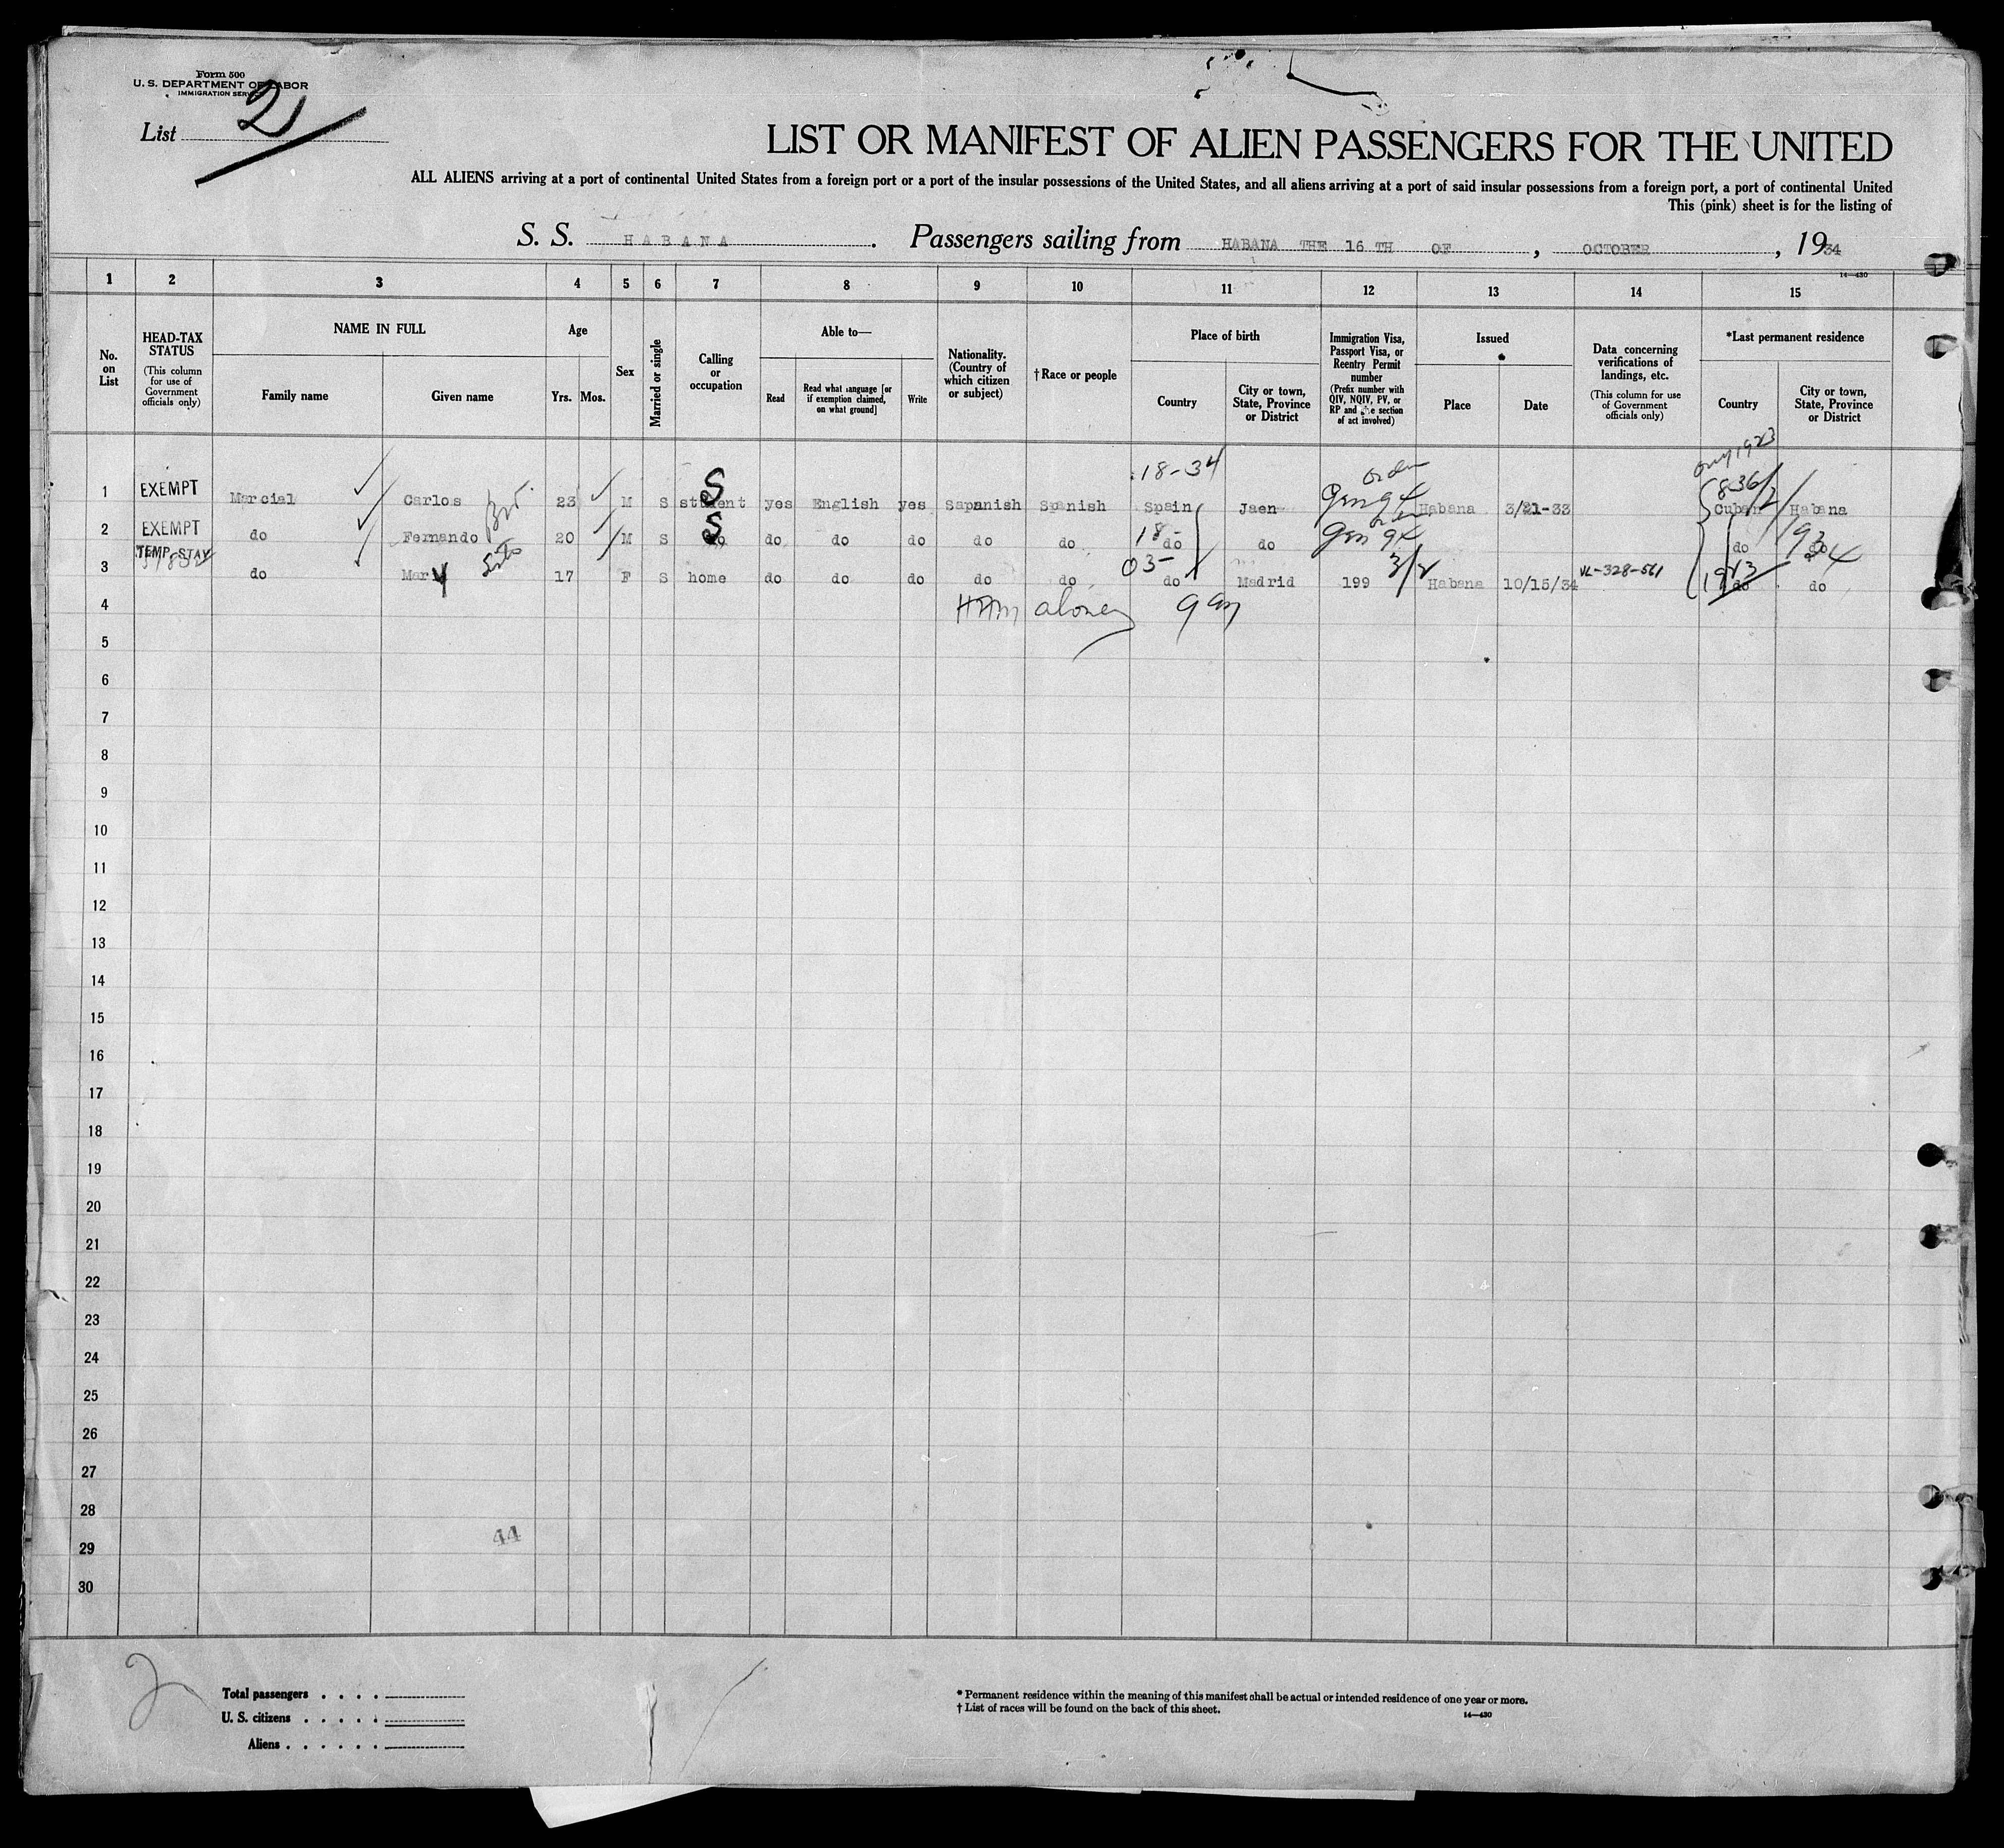 Form 500
U. S. DEPARTMENT OF LABOR
IMMIGRATION SERVICE
List 2
LIST OR MANIFEST OF ALIEN PASSENGERS FOR THE UNITED
ALL ALIENS arriving at a port of continental United States from a foreign port or a port of the insular possessions of the United States, and all aliens arriving at a port of said insular possessions from a foreign port, a port of continental United
This (pink) sheet is for the listing of
S. S. HABANA. Passengers sailing from HABANA THE 16 TH OF, OCTOBER, 1934
14—430
1 2 3 4 5 6 7 8 9 10 11 12 13 14 15
No. on List
HEAD-TAX STATUS (This column for use of Government officials only)
NAME IN FULL
Family name
Given name
Age
Yrs. Mos.
Sex
Married or single
Calling or occupation
Able to—
Read
Read what language [or if exemption claimed, on what ground]
Write
Nationality. (Country of which citizen or subject)
†Race or people
Place of birth
Country
City or town, State, Province or District
Immigration Visa, Passport Visa, or Reentry Permit number (Prefix number with QIV, NQIV, PV, or RP and the section of act involved)
Issued
Place
Date
Data concerning verifications of landings, etc. (This column for use of Government officials only)
*Last permanent residence
Country
City or town, State, Province or District
18-34
1 EXEMPT Marcial Carlos 23 M S student S yes English yes Sapanish Spanish Spain Jaen Habana 3/21-33 Cuban Habana
2 EXEMPT do Fernando 20 M S do S do do do do do 18- do do do do 934
TEMP. STAY
3 do Mary 17 F S home do do do do do 03- do Madrid 199 3/2 Habana 10/15/34 VL-328-561 1923 do do
4 alone
5
6
7
8
9
10
11
12
13
14
15
16
17
18
19
20
21
22
23
24
25
26
27
28
44
29
30
2
Total passengers . . . .
U. S. citizens . . . . .
Aliens . . . . . .
* Permanent residence within the meaning of this manifest shall be actual or intended residence of one year or more.
† List of races will be found on the back of this sheet.
14—430